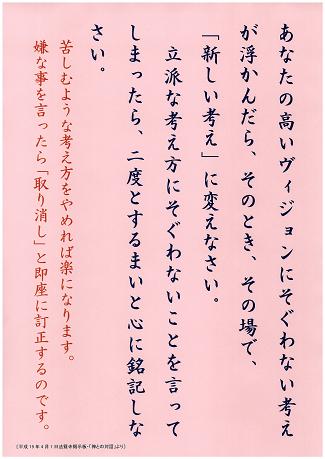 あなたの高いヴィジョンにそぐわない考え
が浮かんだら、そのとき、その場で、
「新しい考え」に変えなさい。
立派な考え方にそぐわないことを言って
しまったら、二度とするまいと心に銘記しな
さい。
苦しむような考え方をやめれば楽になります。
嫌な事を言ったら「取り消し」と即座に訂正するのです。